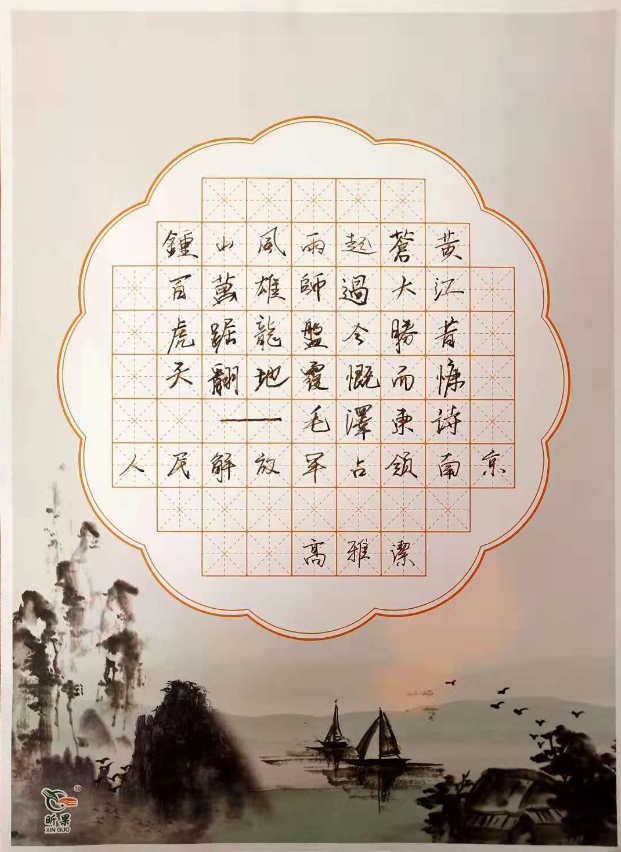 鍾山風雨起蒼黃
百萬雄師過大江
虎踞龍盤今勝昔
天翻地覆慨而慷
——毛澤東詩
人民解放軍占領南京
高雅潔
昕果
XIN GUO